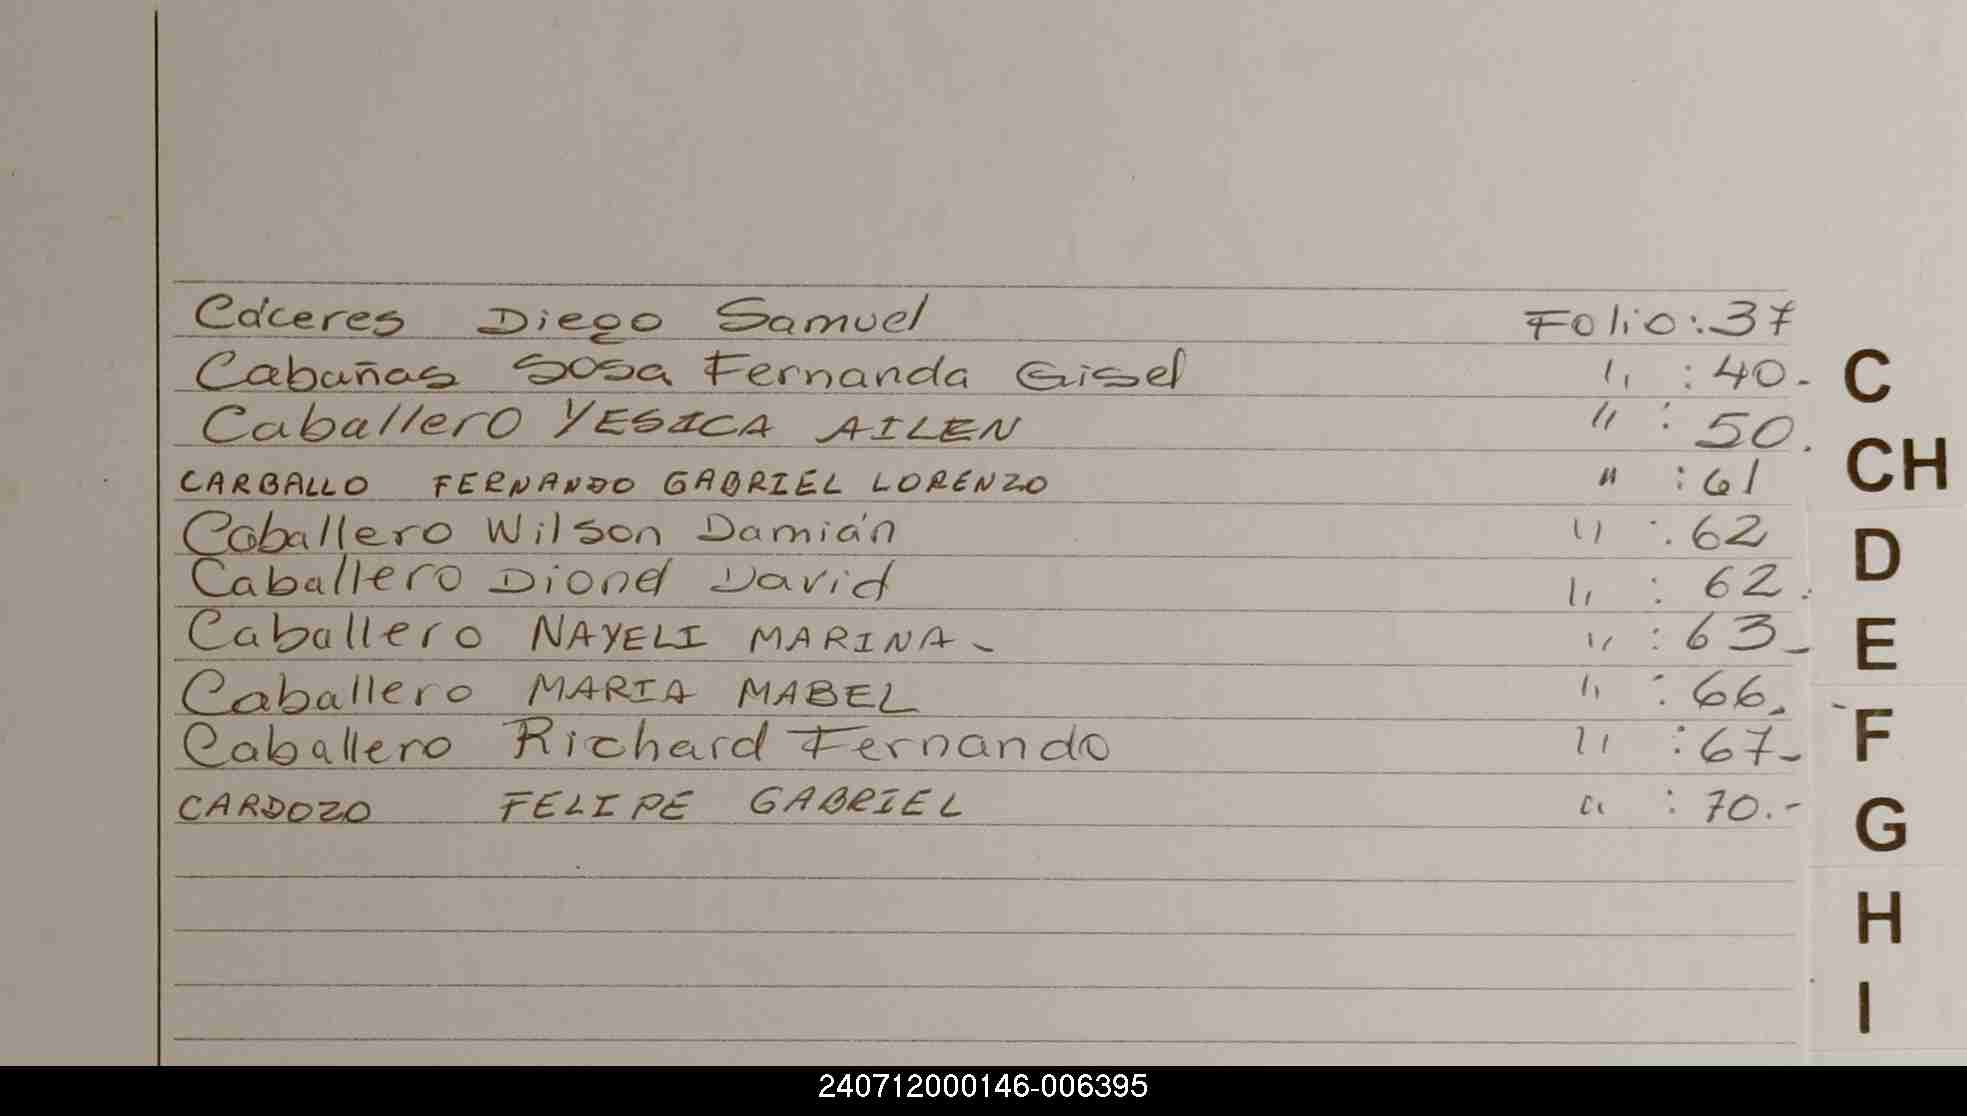 Cáceres Diego Samuel Folio: 37
Cabañas Sosa Fernanda Gisel " : 40.-
Caballero YESICA AILEN " : 50.
CARBALLO FERNANDO GABRIEL LORENZO " : 61
Caballero Wilson Damián " : 62
Caballero Diond David " : 62.
Caballero NAYELI MARINA - " : 63-
Caballero MARIA MABEL " : 66.
Caballero Richard Fernando " : 67-
CARDOZO FELIPE GABRIEL " : 70.-
C
CH
D
E
F
G
H
I
240712000146-006395